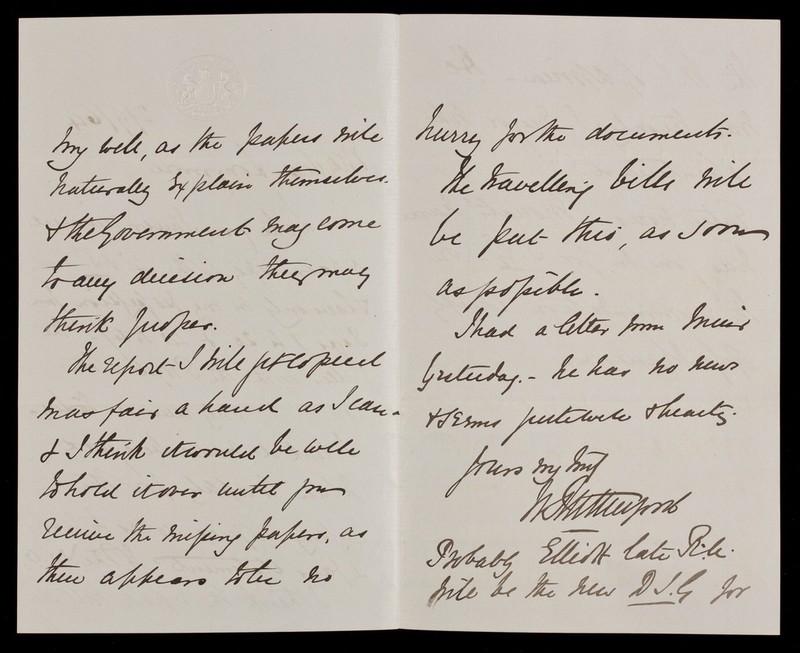 very well, as the papers will
naturally explain themselves.
& the Government may come
to any decision they may
think proper.
The report I will get copied
in as fair a hand as I can -
& I think it would be well
to hold it over until you
receive the missing papers, as
there appears to be no
hurry for the documents.
The travelling bills will
be put thro, as soon
as possible.
I had a letter from Muir
yesterday. - he has no news
& seems quite well & hearty.
Yours very truly
W Rutherford
Probably Elliott late
will be the new D.S.G for